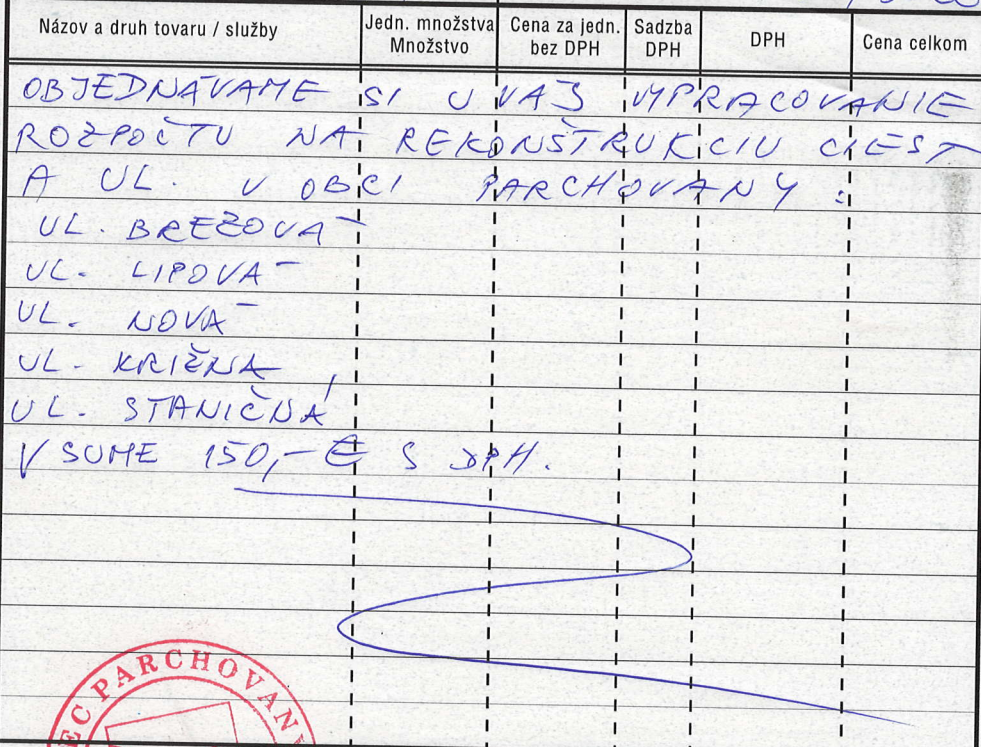 Názov a druh tovaru / služby
Jedn. množstva
Množstvo
Cena za jedn.
bez DPH
Sadzba
DPH
DPH
Cena celkom
OBJEDNÁVAME SI U VÁS VYPRACOVANIE
ROZPOČTU NA REKONŠTRUKCIU CIEST
A UL. V OBCI PARCHOVANY :
UL. BREZOVÁ
UL. LIPOVÁ
UL. NOVÁ
UL. KRIŽNA
UL. STANIČNÁ
V SUME 150,- € S DPH.
EC PARCHOVAN